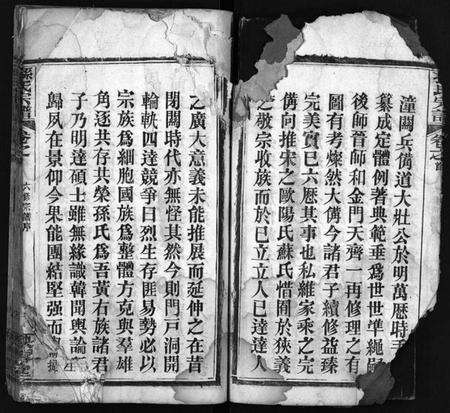 潼關兵備道大壯公於明萬歷時手
纂成定體例著典範垂為世世準繩
後師晉師和金門天齊一再修理之有
圖有考燦然大備今諸君子續修益臻
完美實已六歷其事也私維家乘之完
備向推宋之歐陽氏蘇氏惜囿於狹義
之敬宗收族而於已立立人已達達人
之廣大意義未能推展而延伸之在昔
閉關時代亦無怪其然今則門戶洞開
輪軼四達競爭日烈生存匪易勢必以
宗族為細胞國族為整體方克與羣雄
角逐共存共榮孫氏為吾黃右族諸君
子乃明達碩士雖無緣識韓閱輿論
歸夙在景仰今果能團結堅强而
孫氏宗譜
卷之